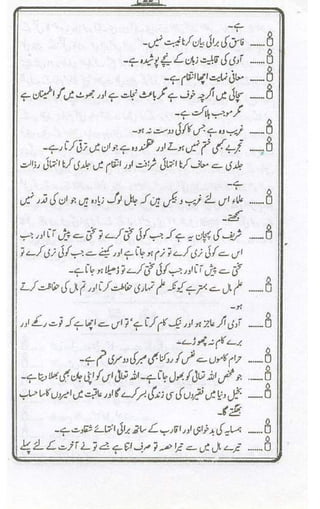 ہے۔
فاسق کی برائی بیان کرنا غیبت نہیں۔
آدمی کی قابلیت زبان کے نیچے پوشیدہ ہے۔
معافی نہایت اچھا انتقام ہے۔
سچائی میں اگرچہ خوف ہے مگر باعث نجات ہے اور جھوٹ میں گو اطمینان ہے
مگر موجب ہلاکت ہے۔
غریب وہ ہے جس کا کوئی دوست نہ ہو۔
تجربے کبھی ختم نہیں ہوتے اور عقلمند وہ ہے جو ان میں ترقی کرتا رہے۔
جلدی سے معاف کرنا انتہائی شرافت اور انتقام میں جلدی کرنا انتہائی رذالت
ہے۔
علماء اس لئے غریب و بیکس ہیں کہ جاہل لوگ زیادہ ہیں جو ان کی قدر نہیں
سمجھتے۔
شریف کی پہچان یہ ہے کہ جب کوئی سختی کرے تو سختی سے پیش آتا اور جب
اس سے کوئی نرمی کرے تو نرم ہو جاتا ہے اور کمینے سے جب کوئی نرمی کرے تو
سختی سے پیش آتا اور جب کوئی سختی کرے تو ڈھیلا ہو جاتا ہے۔
علم مال سے بہتر ہے کیونکہ علم تمہاری حفاظت کرتا اور تم مال کی حفاظت کرتے
ہو۔
آدمی اگر عاجز ہو اور نیک کام کرتا رہے تو اس سے اچھا ہے کہ قوت رکھے اور
برے کام نہ چھوڑے۔
حرام کاموں سے نفس کو روکنا بھی صبر کی دوسری قسم ہے۔
جو شخص اللہ تعالٰی کو بھول جاتا ہے۔ اللہ تعالٰی اس کو اپنی جان بھی بھلا دیتا ہے۔
بخیل دنیا میں فقیروں کی سی زندگی بسر کرے گا اور عاقبت میں امیروں کا سا حساب
بھگتے گا۔
ہمسایہ کی بدخواہی اور اقارب کے ساتھ برائی انتہائے شقاوت ہے۔
تیرے مال میں سے تیرا حصہ تو صرف اتنا ہے جسے تو نے آخرت کے لئے پہلے